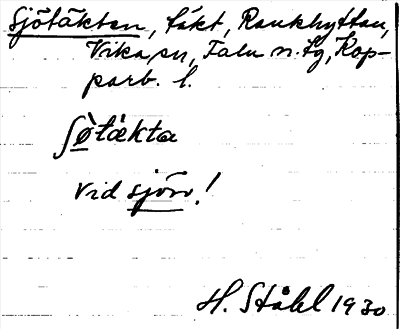 Sjötäkten, täkt, Rankhyttan,
Vika sn, Falu n. tg, Kop-
parb. l.
ʃø̀tǽkta
Vid sjön!
H. Ståhl 1930